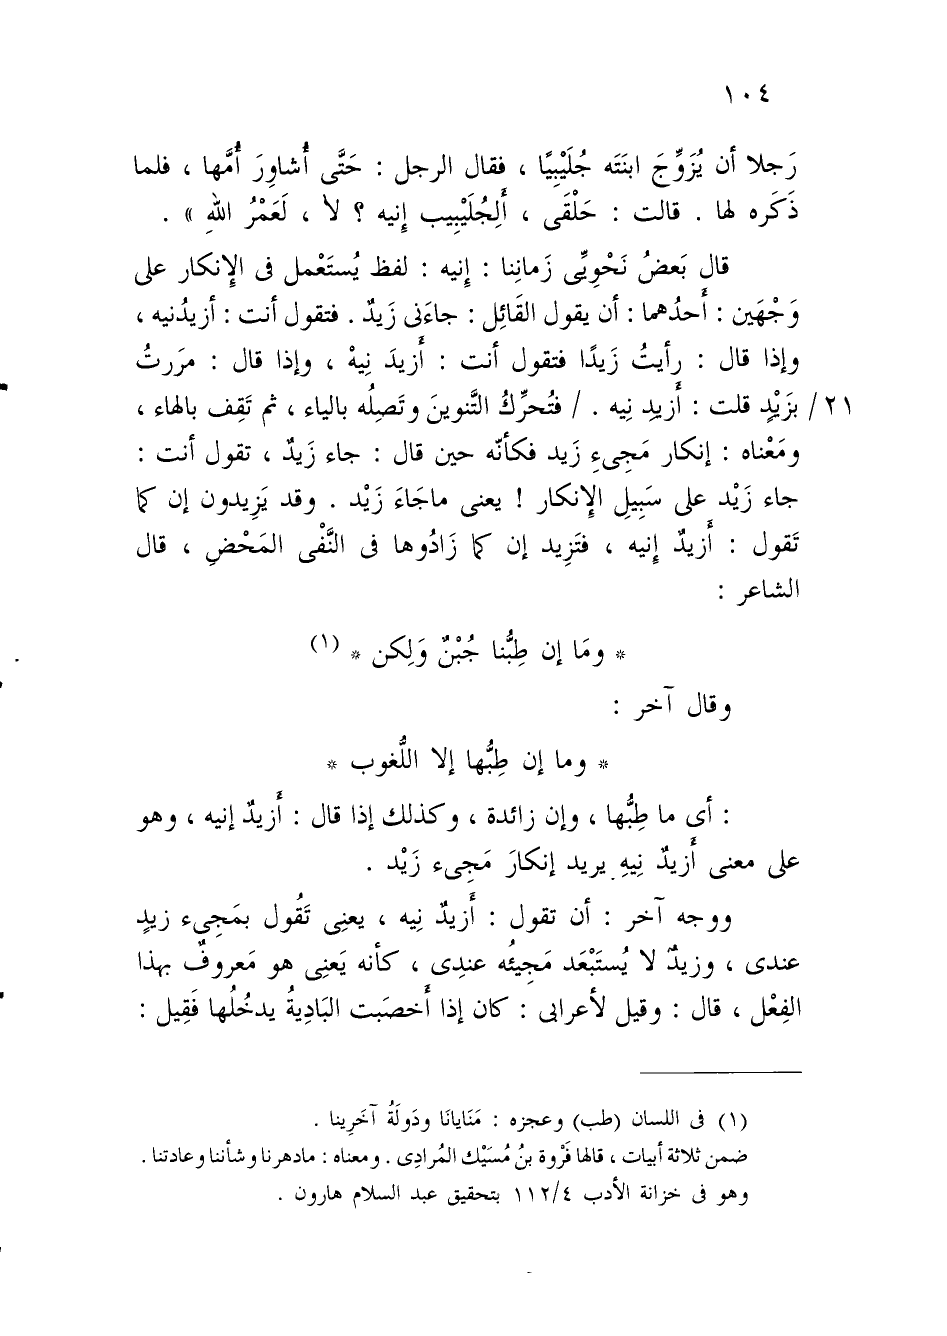 ١٠٤
رَجلا أن يُزَوِّجَ ابنَتَه جُلَيْبِيًا ، فقال الرجل : حَتَّى أُشاوِرَ أُمَّها ، فلما
ذَكَره لها . قالت : حَلْقَى ، أَلِجُلَيْبِيب إنيه ؟ لاَ ، لَعَمْرُ اللهِ » .
قال بَعضُ نَحْوِيِّى زَمانِنا : إنيه : لفظ يُستَعْمل فى الإنكار على
وَجْهَين : أحدُهما : أن يقول القَائِل : جاءَنى زَيدٌ . فتقول أنت : أزيدُنيه ،
وإذا قال : رأيتُ زَيدًا فتقول أنت : أَزيدَ نِيهْ ، وإذا قال : مرَرتُ
٢١/ بزَيْدٍ قلت : أَزيدِ نِيه . / فتُحرِّكُ التَّنوينَ وتَصِلُه بالياء ، ثم تَقِف بالهاء ،
ومَعْناه : إنكار مَجِىءِ زَيد فكأنّه حين قال : جاء زَيدٌ ، تقول أنت :
جاء زَيْد على سَبِيلِ الإنكار ! يعنى ماجَاءَ زَيْد . وقد يَزِيدون إن كما
تَقول : أَزيدٌ إنيه ، فتَزِيد إن كما زَادُوها فى النَّفْى المَحْضِ ، قال
الشاعر :
* ومَا إن طِبُّنا جُبْنٌ وَلِكن * (١)
وقال آخر :
* وما إن طِبُّها إلا اللُّغوب *
: أى ما طِبُّها ، وإن زائدة ، وكذلك إذا قال : أَزيدٌ إنيه ، وهو
على معنى أَزيدٌ نِيهِ يريد إنكارَ مَجِىء زَيْد .
ووجه آخر : أن تقول : أَزيدٌ نِيه ، يعنِى تَقُول بمَجِىء زيدٍ
عندى ، وزيدٌ لا يُستَبْعَد مَجِيئُه عندِى ، كأنه يَعنِى هو مَعروفٌ بهذا
الفِعْل ، قال : وقيل لأعرابى : كان إذا أَخصَبت البَادِيةُ يدخُلُها فَقِيل :
(١) فى اللسان (طب) وعجزه : مَنَايانَا ودَولَةُ آخَرِينا .
ضمن ثلاثة أبيات ، قالها فَرْوة بنُ مُسَيْك المُرادِى . ومعناه : مادهرنا وشأننا وعادتنا .
وهو فى خزانة الأدب ١١٢/٤ بتحقيق عبد السلام هارون .